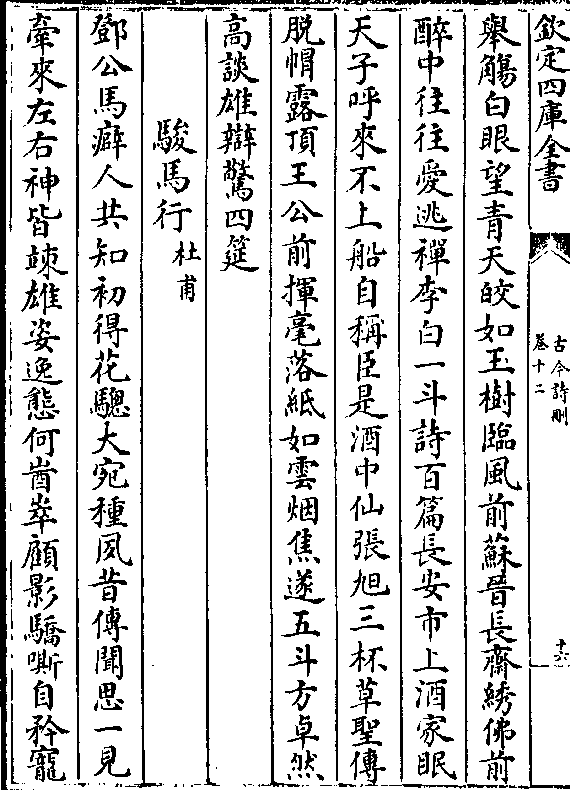 欽定四庫全書
古今詩刪
卷十二
十六
舉觴白眼望青天皎如玉樹臨風前蘇晉長齋綉佛前
醉中往往愛逃禪李白一斗詩百篇長安市上酒家眠
天子呼來不上船自稱臣是酒中仙張旭三杯草聖傳
脱帽露頂王公前揮毫落紙如雲烟焦遂五斗方卓然
高談雄辯驚四筵
駿馬行 杜甫
鄧公馬癖人共知初得花驄大宛種夙昔傳聞思一見
牽來左右神皆竦雄姿逸態何崷崒顧影驕嘶自矜寵